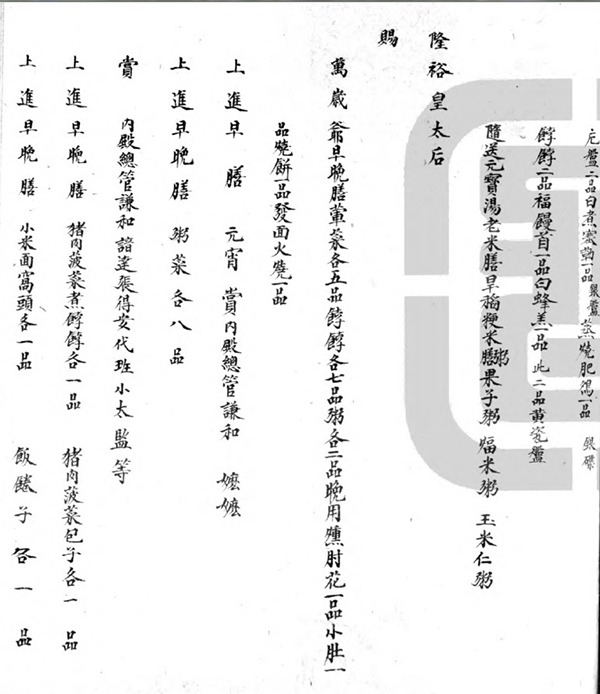 庀盤二品白煮塞勒一品銀盤蒸燒肥鴻一品 銀碟
餑餑二品福饅首一品白蜂羔一品 此二品黃瓷盤
隨送元寶湯老米膳旱稻粳米膳粥果子粥煏米粥 玉米仁粥
隆裕皇太后
賜
萬歲爺早晚膳葷菜各五品餑餑各七品粥各二品晚用燻肘花一品小肚一
品燒餅一品發面火燒一品
上進早膳 元宵 賞內殿總管謙和 嬤嬤
上進早晚膳 粥菜各八品
賞 內殿總管謙和 諳達張得安代班小太監等
上進早晚膳 猪肉菠菜煮餑餑各一品 猪肉菠菜包子各一品
上進早晚膳 小米面窩頭各一品 飯餑子各一品